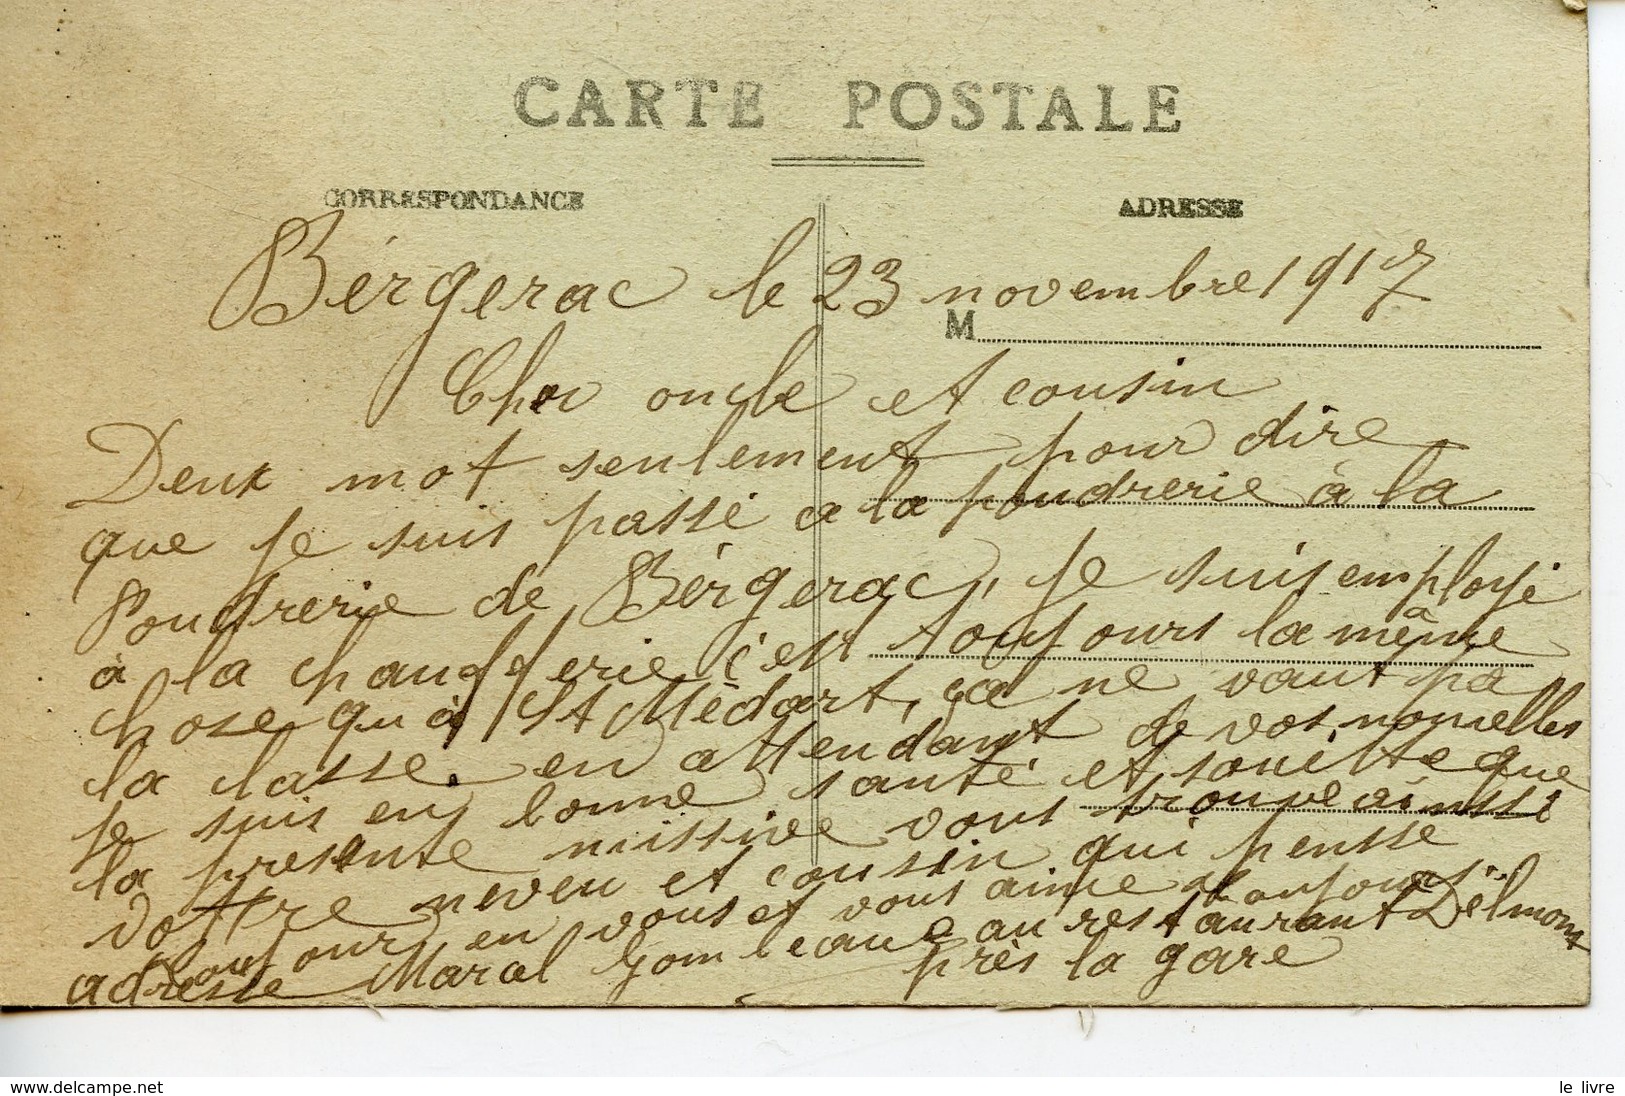 CARTE POSTALE
CORRESPONDANCE ADRESSE
Bérgerac le 23 novembre 1917
M
Cher oncle et cousin
Deux mot seulement pour dire
que je suis passé a la poudrerie à la
Poudrerie de Bérgerac, je suis employé
à la chaufferie c'est toujours la même
chose qu'à St Médart, ça ne vaut pa
la classe. en attendant de vos nouvelles
je suis en bonne santé et souètte que
la presente missive vous trouve ainssi
vottre neveu et cousin qui pensse
toujours en vous et vous aime toujours
adresse Marcel Gombeaud au restaurant Délmont
près la gare
www.delcampe.net
le livre